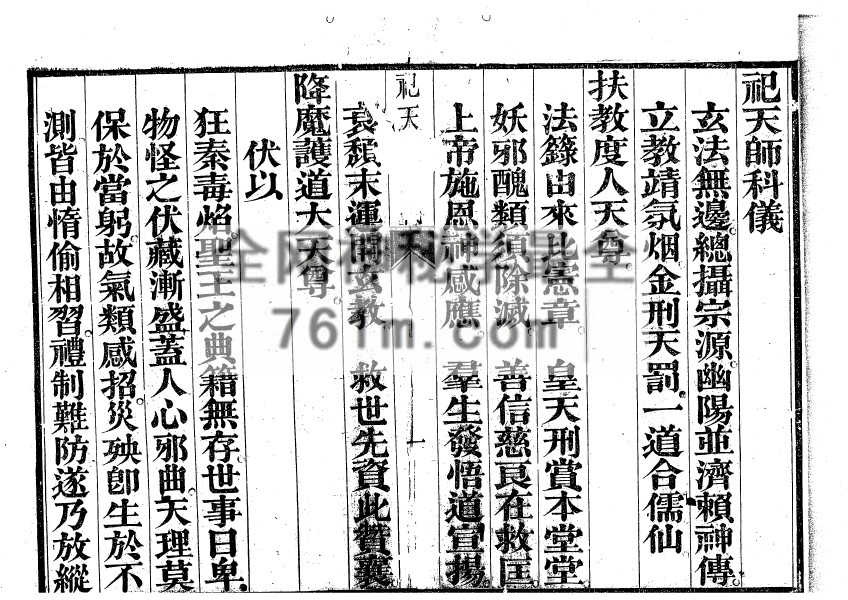 祀天師科儀
玄法無邊總攝宗源。幽陽並濟賴神傳
立教靖氛烟金刑天罰。一道合儒仙
扶教度人天尊。
法籙由來比憲章　皇天刑賞本堂堂
妖邪醜類須除滅　善信慈良在救匡
上帝施恩神感應　羣生發悟道宣揚
祀天
一
哀頹末運開玄教　救世先資此贊襄
降魔護道大天尊
伏以
狂秦毒焰。聖王之典籍無存世事日卑.
物怪之伏藏漸盛蓋人心邪曲。天理莫
保於當躬。故氣類感招。災殃卽生於不
測皆由惰偷相習。禮制難防。遂乃放縱
761m.com